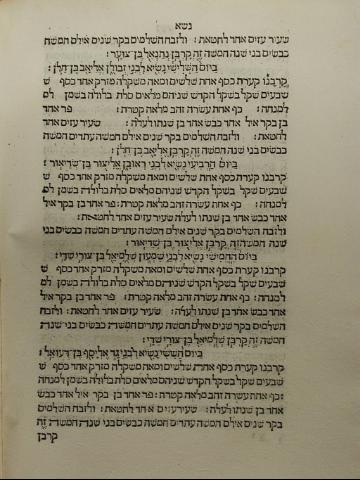 נשא
שעיר עזים אחד לחטאת: ולזבח השלמים בקר שנים אילם חמשה
כבשים בני שנה חמשה זה קרבן נתנאל בן צוער:
ביום השלישי נשיא לבני זבולן אליאב בן חלן:
קרבנו קערת כסף אחת שלשים ומאה משקלה מזרק אחד כסף ש
שבעים שקל בשקל הקדש שניהם מלאים סלת בלולה בשמן
למנחה: כף אחת עשרה זהב מלאה קטרת: פר אחד
בן בקר איל אחד כבש אחד בן שנתו לעלה: שעיר עזים אחד
לחטאת: ולזבח השלמים בקר שנים אילם חמשה עתדים חמשה
כבשים בני שנה חמשה זה קרבן אליאב בן חלן:
ביום הרביעי נשיא לבני ראובן אליצור בן שדיאור:
קרבנו קערת כסף אחת שלשים ומאה משקלה מזרק אחד כסף ש
שבעים שקל בשקל הקדש שניהם מלאים סלת בלולה בשמן ל
למנחה: כף אחת עשרה זהב מלאה קטרת: פר אחד בן בקר איל
אחד כבש אחד בן שנתו לעלה: שעיר עזים אחד לחטאת:
ולזבח השלמים בקר שנים אילם חמשה עתדים חמשה כבשים בני
שנה חמשה זה קרבן אליצור בן שדיאור:
ביום החמישי נשיא לבני שמעון שלמיאל בן צורי שדי:
קרבנו קערת כסף אחת שלשים ומאה משקלה מזרק אחד כסף ש
שבעים שקל בשקל הקדש שניהם מלאים סלת בלולה בשמן ל
למנחה: כף אחת עשרה זהב מלאה קטרת: פר אחד בן בקר איל
אחד כבש אחד בן שנתו לעלה: שעיר עזים אחד לחטאת: ולזבח
השלמים בקר שנים אילם חמשה עתדים חמשה כבשים בני שנה
חמשה זה קרבן שלמיאל בן צורי שדי:
ביום הששי נשיא לבני גד אליסף בן דעואל:
קרבנו קערת כסף אחת שלשים ומאה משקלה מזרק אחד כסף ש
שבעים שקל בשקל הקדש שניהם מלאים סלת בלולה בשמן למנחה
: כף אחת עשרה זהב מלאה קטרת: פר אחד בן בקר איל אחד כבש
אחד בן שנתו לעלה: שעיר עזים אחד לחטאת: ולזבח השלמים
בקר שנים אילם חמשה עתדים חמשה כבשים בני שנה חמשה זה
קרבן